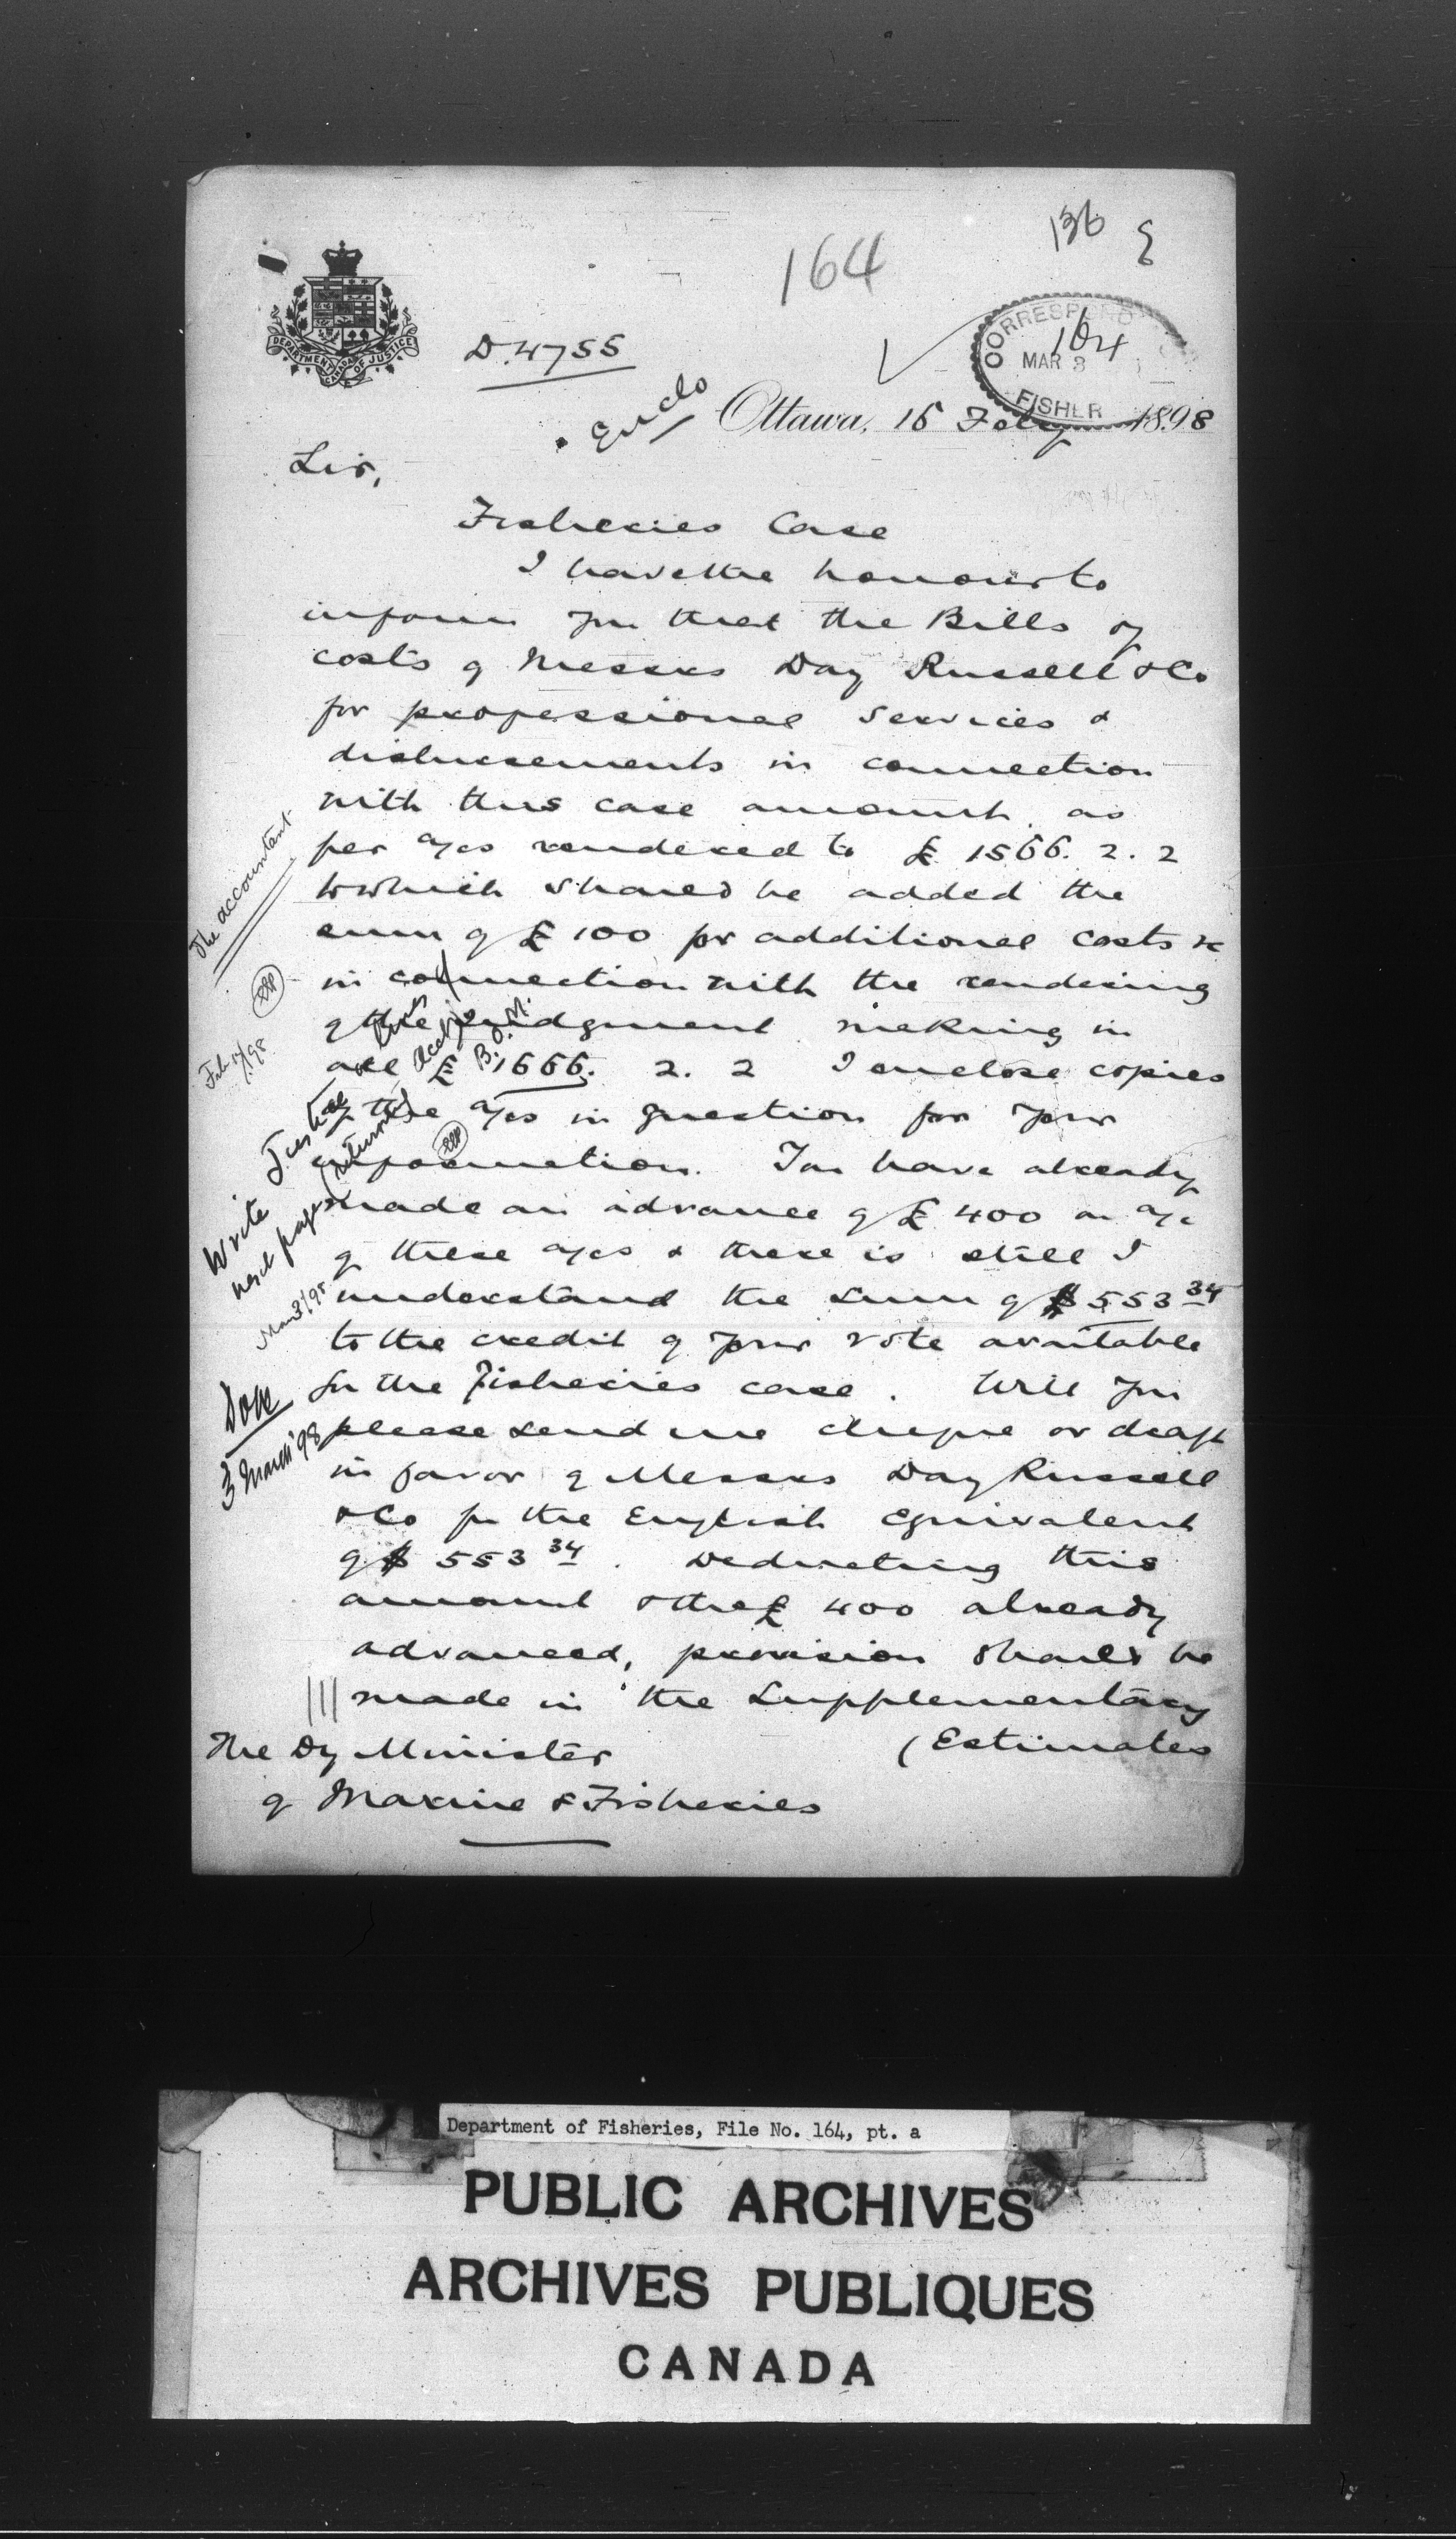 136
164
DEPARTMENT OF JUSTICE
CANADA
D. 4755
CORRESPOND
164
MAR 3
FISHER
Enclo
Ottawa, 15 Feby 1898
Sir,
Fisheries Case
I have the honour to
inform you that the Bills of
costs of Messrs Day Russell & Co
for professional services &
disbursements in connection
with this case amount as
per a/cs rendered to £ 1566. 2. 2
to which should be added the
sum of £ 100 for additional costs &c
in connection with the rendering
of the judgment making in
all £ 1666. 2. 2 I enclose copies
of the a/cs in question for your
information. You have already
made an advance of £ 400 on a/c
of these a/cs & there is still I
understand the sum of $ 553 34
to the credit of your vote available
for the Fisheries case. Will you
please send me cheque or draft
in favor of Messrs Day Russell
& Co for the English equivalent
of $ 553 34. Deducting this
amount & the £ 400 already
advanced, provision should be
made in the Supplementary
(Estimates
The Dy Minister
of Marine & Fisheries
The accountant
Feb 19/98
Write Justice
next page (returned)
B.O.M.
Mar 3/98
Done
3 March '98
Department of Fisheries, File No. 164, pt. a
PUBLIC ARCHIVES
ARCHIVES PUBLIQUES
CANADA